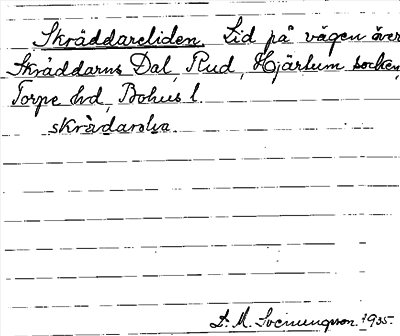 Skräddareliden. Lid på vägen över
Skräddarns Dal, Rud, Hjärtum socken,
Torpe hd, Bohus l.
skrädarolsa.
S. M. Svenungsson. 1935.